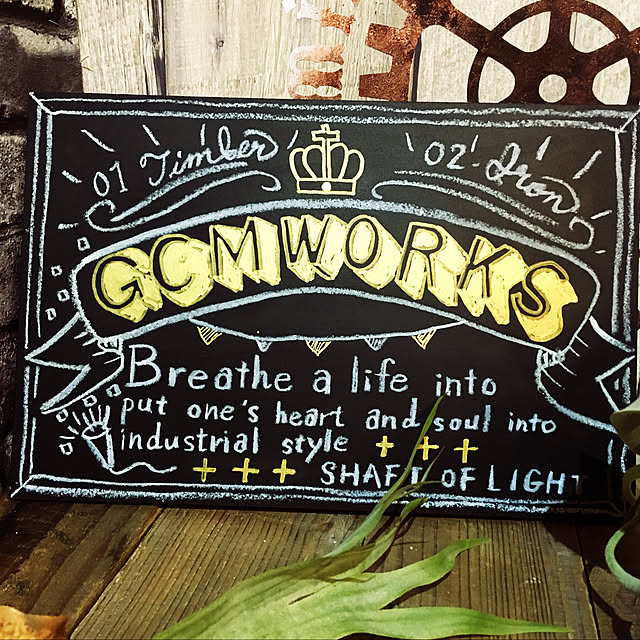 01 Timber
02 Iron
GCMWORKS
Breathe a life into
put one's heart and soul into
industrial style + + +
+ + + SHAFT OF LIGHT